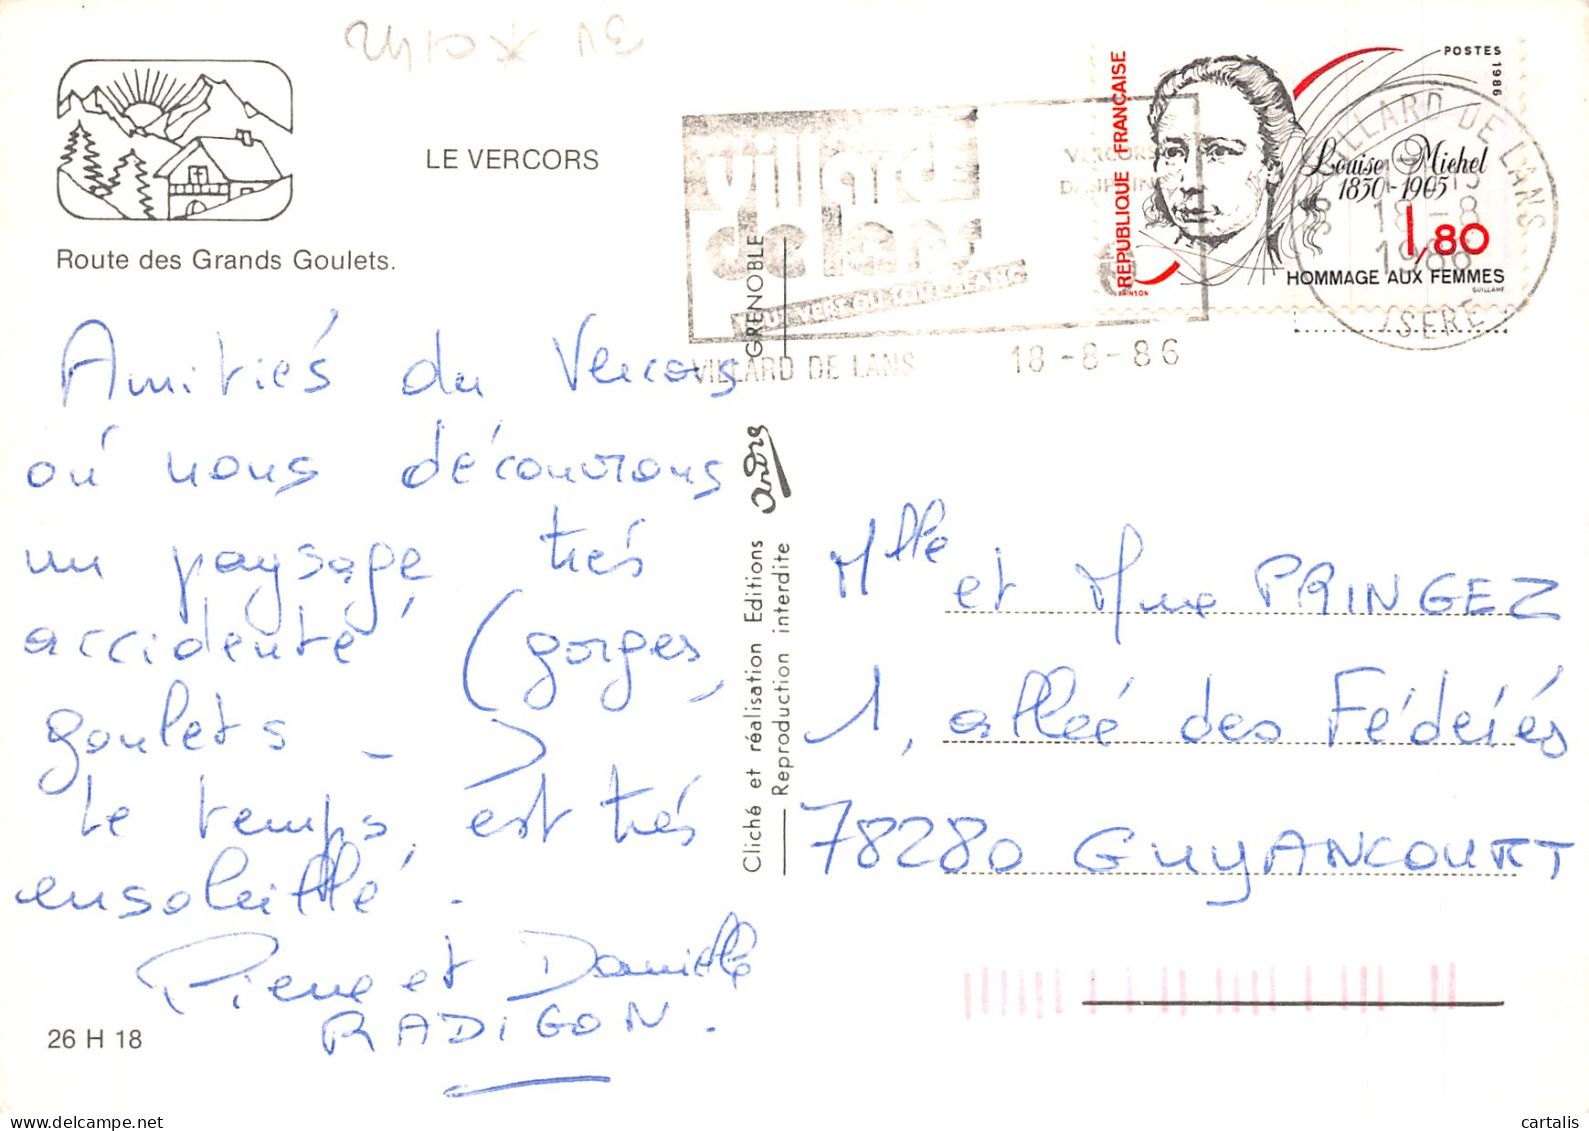 LE VERCORS
Route des Grands Goulets.
Amitiés du Vercors
où nous découvrons
un paysage très
accidenté (gorges,
goulets - )
Le temps, est très
ensoleillé.
Pierre et Danielle
RADIGON.
26 H 18
GRENOBLE
andre
Cliché et réalisation Editions
Reproduction interdite
villard
de lans
VILLARD DE LANS 18-8-86
VILLARD DE LANS
18-8
1986
ISERE
REPUBLIQUE FRANÇAISE
POSTES 1986
Louise Michel
1830-1905
1,80
HOMMAGE AUX FEMMES
Mlle et Mme PRINGEZ
1, allée des Fédérés
78280 GUYANCOURT
cartalis
delcampe.net